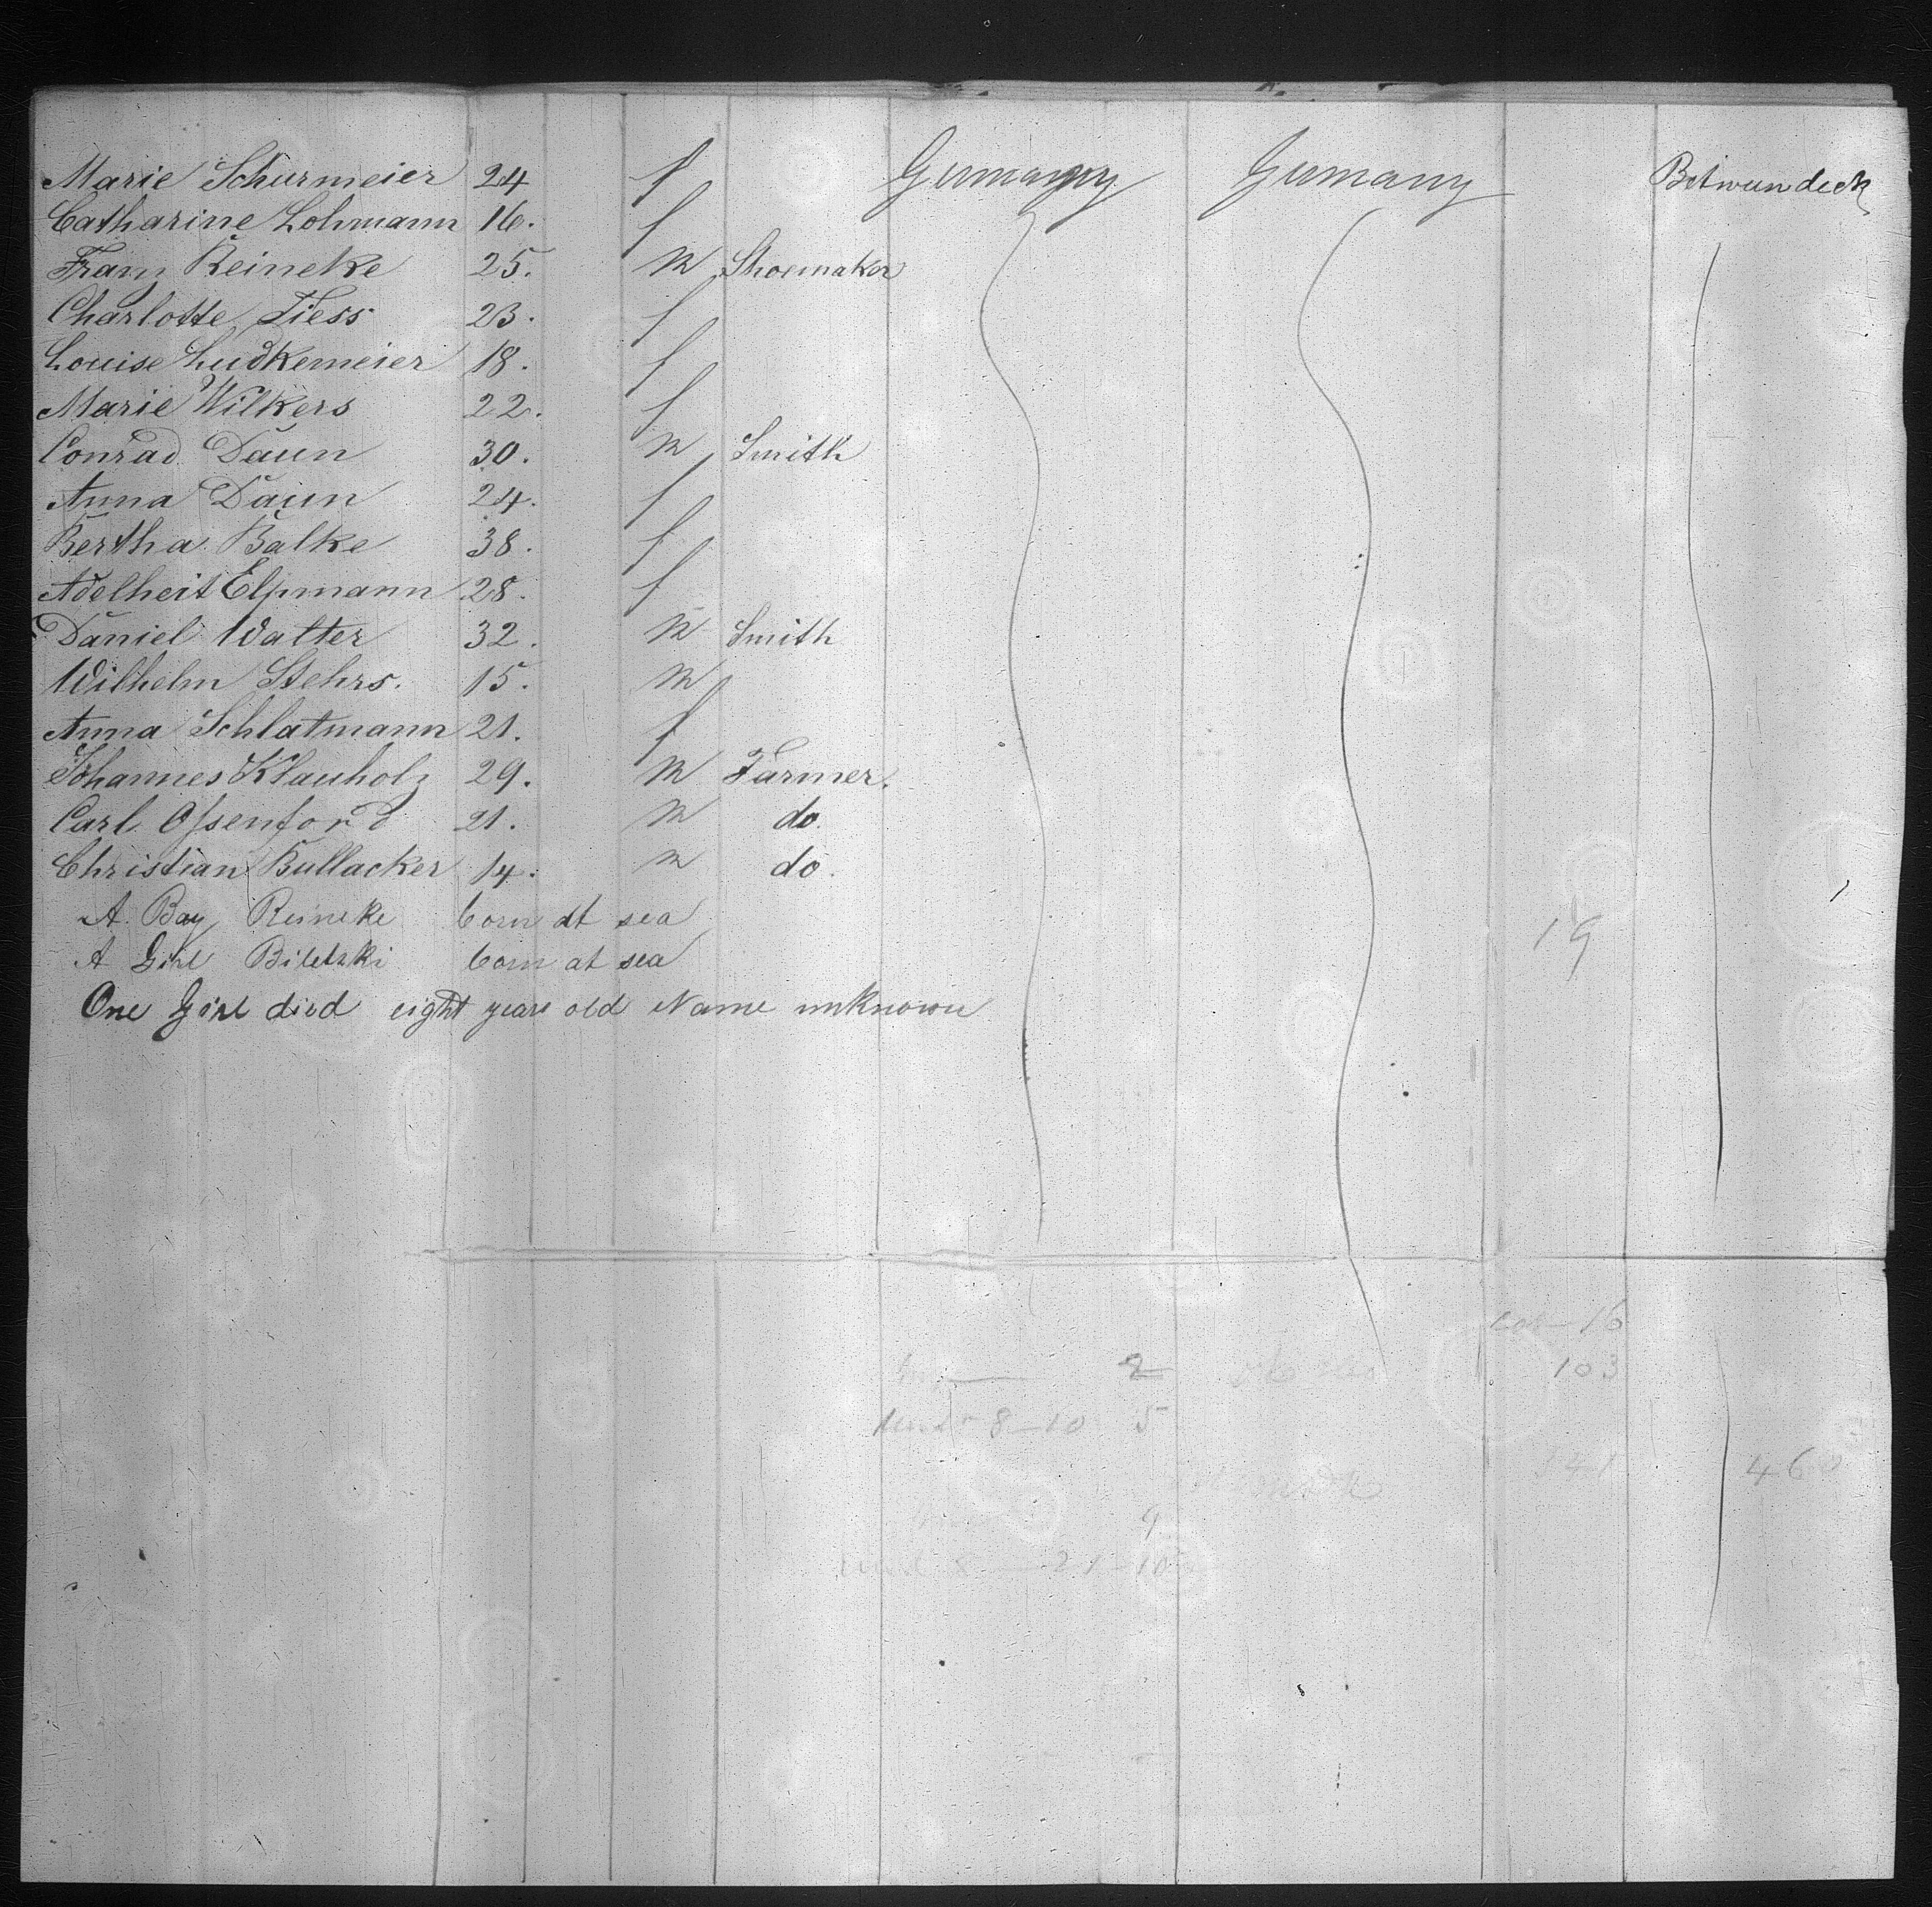 Marie Schurmeier 24 f Germany Germany Betweendeck
Catharine Lohmann 16. f
Franz Reineke 25. m Shoemaker
Charlotte Tiess 23. f
Louise Ludkemeier 18. f
Marie Wilkers 22. f
Conrad Daun 30. m Smith
Anna Daun 24. f
Bertha Balke 38. f
Adelheit Elpmann 28. f
Daniel Walter 32. m Smith
Wilhelm Stehrs. 15. m
Anna Schlatmann 21. f
Johannes Klauholz 29. m Farmer.
Carl Ossenford 21. m do.
Christian Bullacker 14. m do.
A. Boy Reineke born at sea
A Girl Biletzki born at sea
19
One Girl died eight years old Name unknown
16
2 103
8-10 5
141 460
9